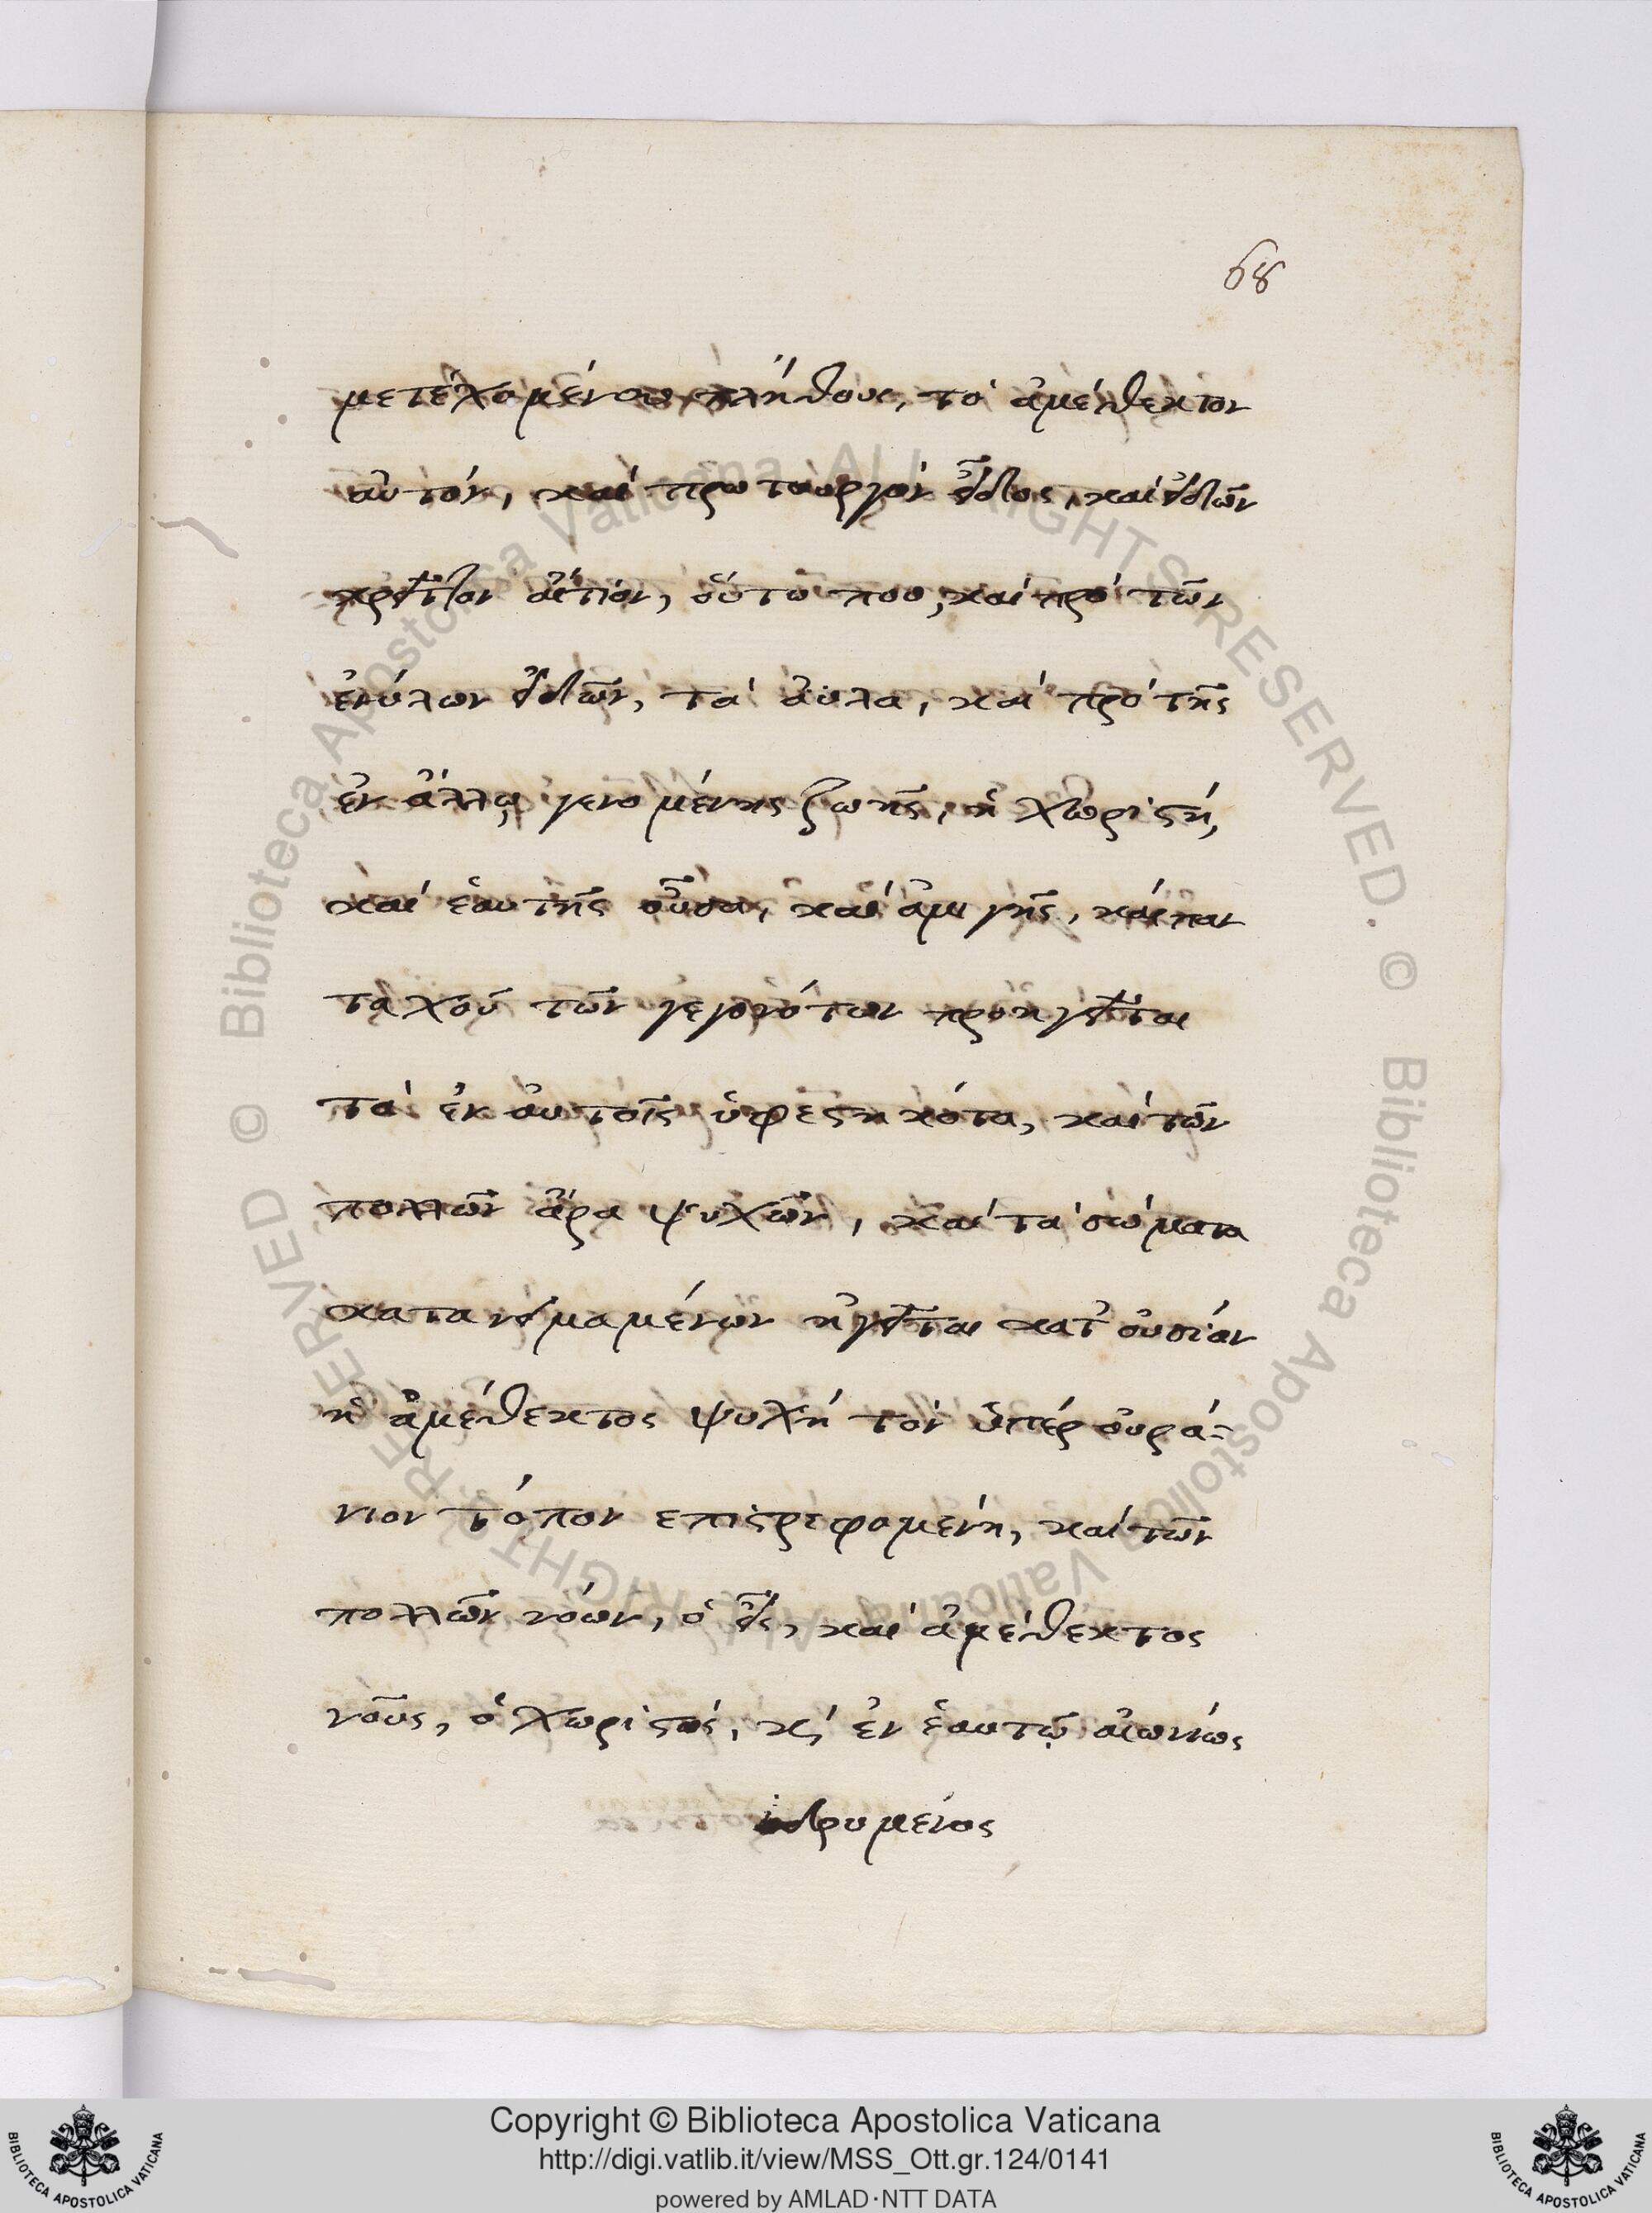 68
μετεχομένου πλήθους, τὸ ἀμέθεκτον
αὐτόν, καὶ πρωτουργὸν εἶδος, καὶ εἰδῶν
κρεῖττον αἴτιον, οὕτω που, καὶ πρὸ τῶν
ἐνύλων εἰδῶν, τὰ ἄυλα, καὶ πρὸ τῆς
ἐν ἄλλῳ γενομένης ζωῆς, ἡ χωριστή,
καὶ ἑαυτῆς οὖσα, καὶ ἀμιγὴς, καὶ παν
ταχοῦ τῶν γεγονότων προηγεῖται
τὰ ἐκ αυτοῖς ὑφεστηκότα, καὶ τῶν
πολλῶν ἄρα ψυχῶν, καὶ τὰ σώματα
κατανειμαμένων ἡγεῖται κατ' οὐσίαν
ἡ ἀμέθεκτος ψυχὴ τὸν ὑπέρ οὐρά-
νιον τόπον επιστρεφομένη, καὶ τῶν
πολλῶν νόων, ὁ εἷς, καὶ ἀμέθεκτος
νοῦς, ὁ χωριστὸς, κ' ἐν ἑαυτῷ αἰωνίως
ἱδρυμένος
© Biblioteca Apostolica Vaticana ALL RIGHTS RESERVED. © Biblioteca Apostolica Vaticana ALL RIGHTS RESERVED
Copyright © Biblioteca Apostolica Vaticana
http://digi.vatlib.it/view/MSS_Ott.gr.124/0141
powered by AMLAD·NTT DATA
BIBLIOTECA APOSTOLICA VATICANA
BIBLIOTECA APOSTOLICA VATICANA